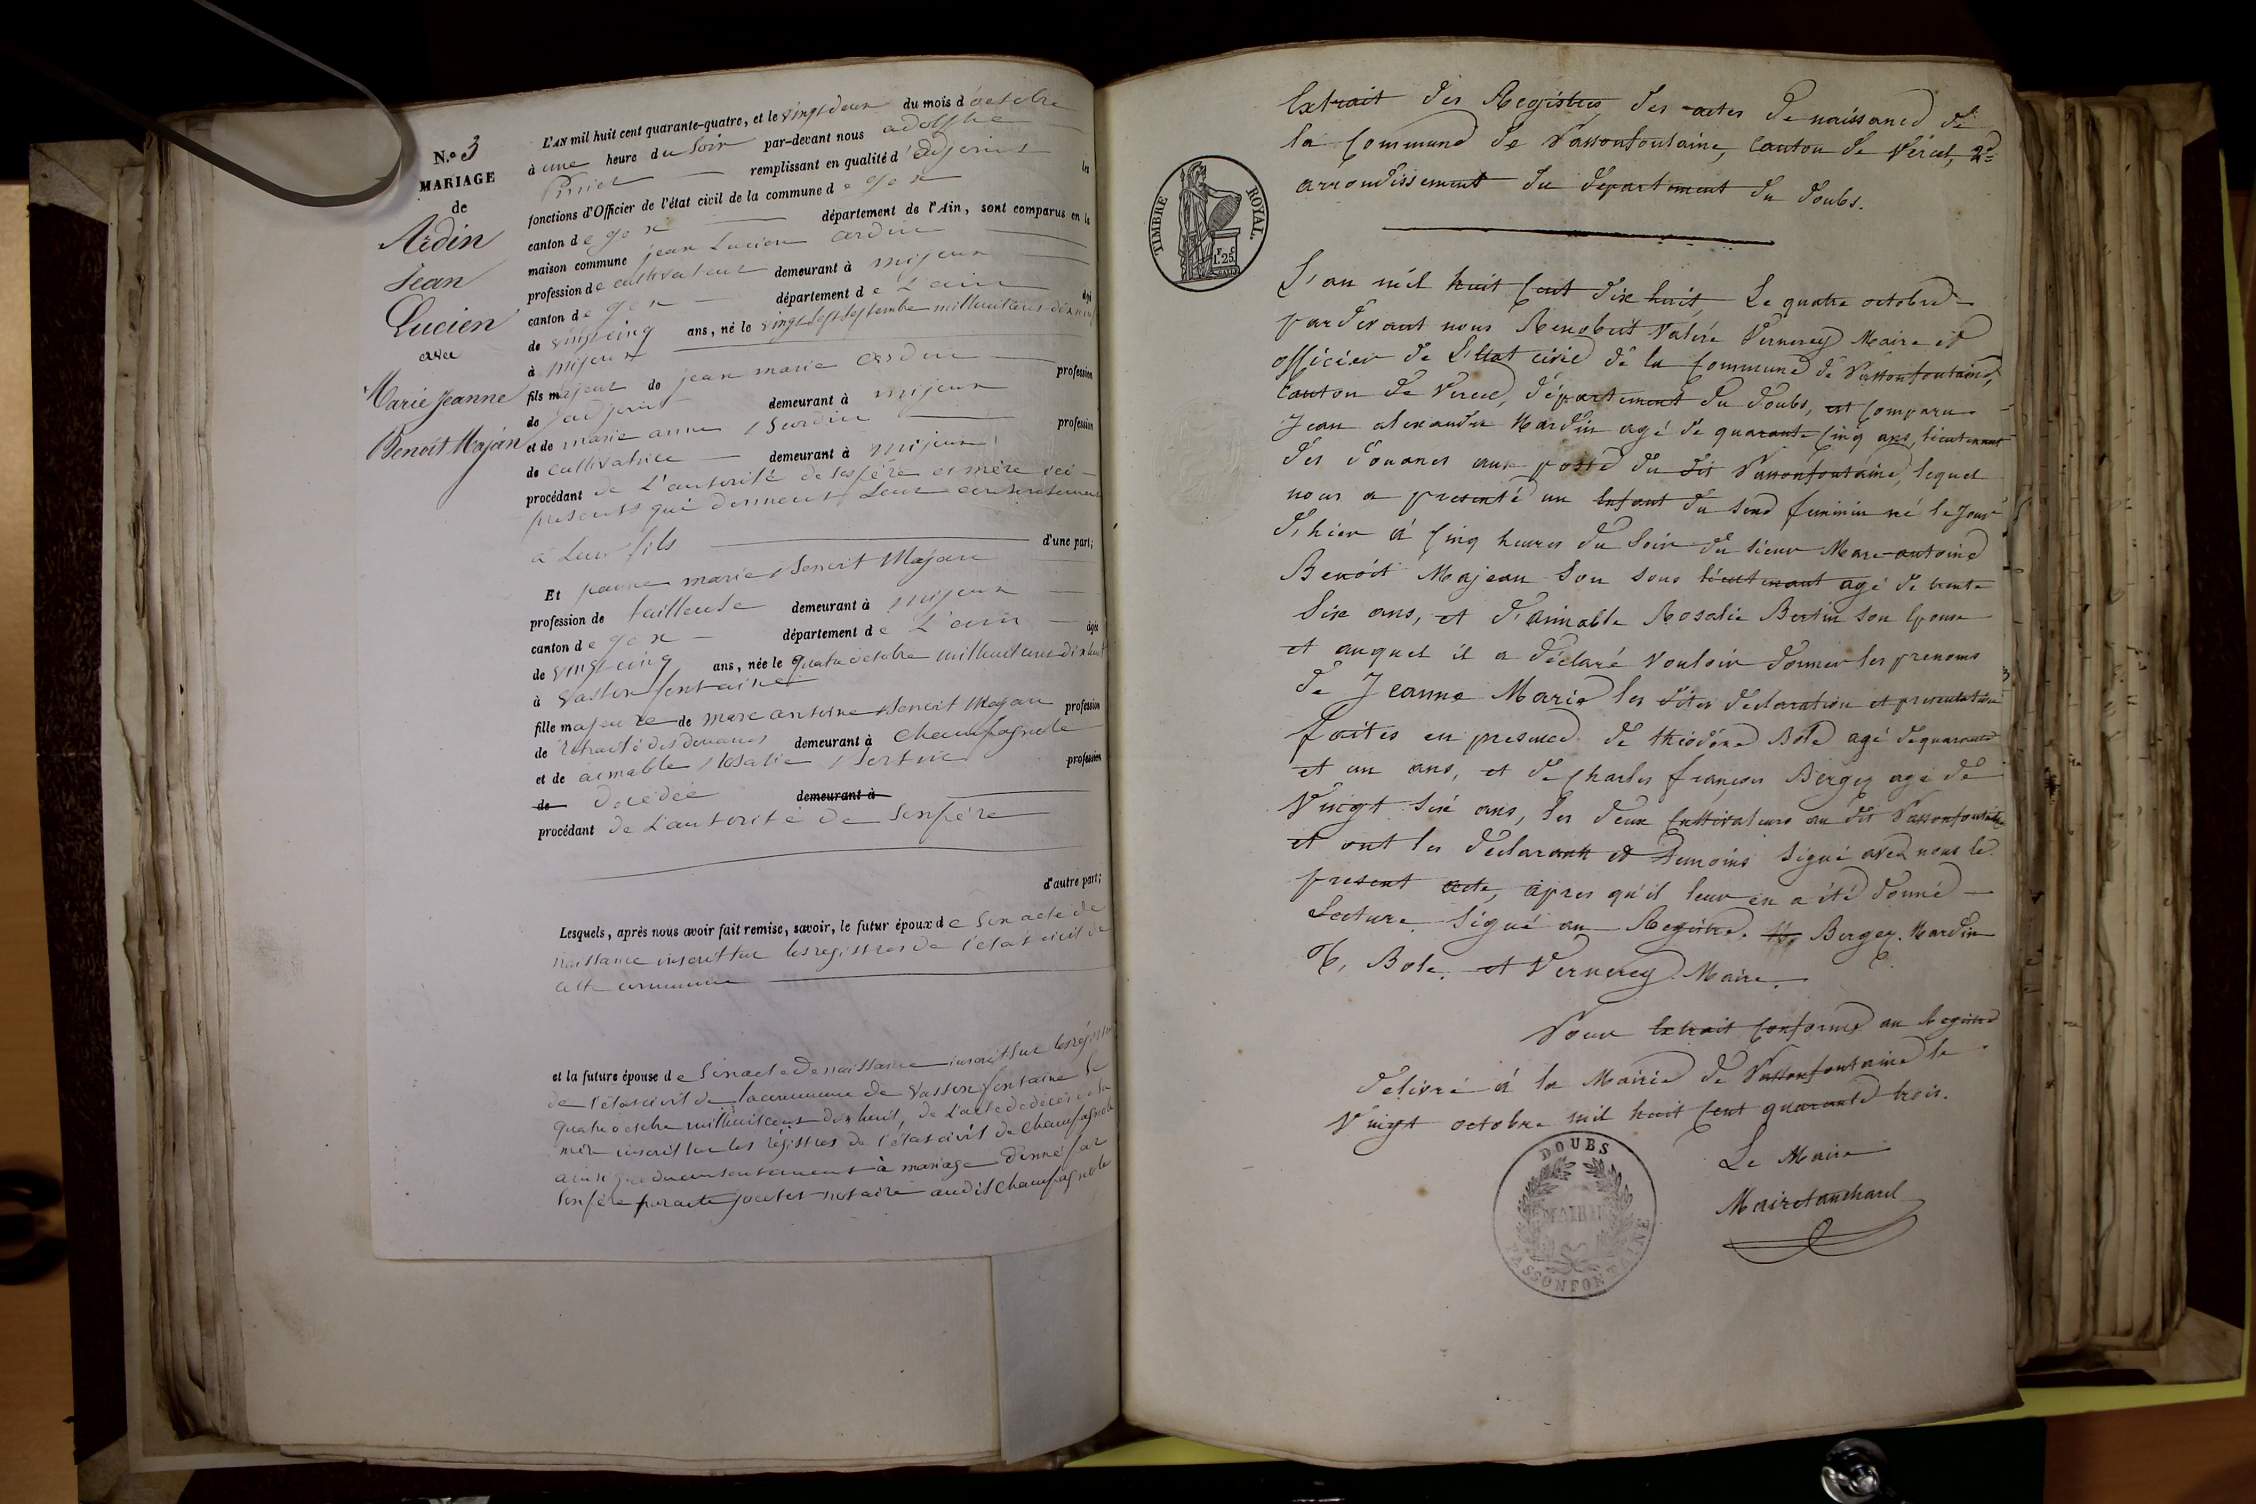 N.o 3
MARIAGE
de
Ardin
Jean
Lucien
avec
Marie Jeanne
Benoit Majan
L'AN mil huit cent quarante-quatre, et le vingt deux du mois d'octobre
à une heure du soir par-devant nous adolphe
remplissant en qualité d'adjoint les
fonctions d'Officier de l'état civil de la commune de gex
canton de gex département de l'Ain, sont comparus en la
maison commune jean Lucien ardin
profession de cultivateur demeurant à mijoux
canton de gex département de L'ain âgé
de vingt cinq ans, né le vingt sept septembre mil huit cent dix neuf
à mijoux
fils majeur de jean marie ardin profession
de adjoint demeurant à mijoux
et de marie anne profession
de cultivatrice demeurant à mijoux
procédant de L'autorité de ses père et mère ici
présents qui donnent leur consentement
à leur fils d'une part;
Et jeanne marie Benoit Majan
profession de tailleuse demeurant à mijoux
canton de gex département de L'ain âgée
de vingt cinq ans, née le quatre octobre mil huit cent dix huit
à Vassonfontaine
fille majeure de marc antoine Benoit Majan profession
de retraité des douanes demeurant à Champagnole
et de aimable Rosalie Bertin profession
de décédée demeurant à
procédant de L'autorité de son père
d'autre part;
Lesquels, après nous avoir fait remise, savoir, le futur époux de son acte de
naissance inscrit sur les registres de l'état civil de
cette commune
et la future épouse de son acte de naissance inscrit sur les registres
de l'état civil de la commune de Vassonfontaine le
quatre octobre mil huit cent dix huit, de L'acte de décès de sa
mère inscrit sur les régistres de l'état civil de Champagnole
ainsi que du consentement à mariage donné par
son père par acte notaire audit Champagnole
TIMBRE ROYAL
1.25
Extrait des Registres des actes de naissance de
la Commune de Vassonfontaine, Canton de Vercel, 2e
arrondissement du département du Doubs.
L'an mil huit Cent dix huit, Le quatre octobre
pardevant nous Renobert Valère Vernerey Maire et
officier de L'Etat civil de la Commune de Vassonfontaine,
Canton de Vercel, département du Doubs, est Comparu
Jean alexandre Mardin agé de quarante Cinq ans, lieutenant
des Douanes au poste du dit Vassonfontaine, lequel
nous a presenté un Enfant du sexe feminin né le jour
d'hier à Cinq heures du Soir du sieur Marc antoine
Benoit Majean Son sous lieutenant agé de trente
Six ans, et d'aimable Rosalie Bertin son Epouse
et auquel il a déclaré vouloir donner les prenoms
de Jeanne Marie les dites declaration et presentation
faites en presence de théodore Bole agé de quarante
et un ans, et de Charles françois Bergey agé de
Vingt Six ans, les deux Cultivateurs au dit Vassonfontaine
et ont les déclarant et temoins Signé avec nous le
present acte, apres qu'il leur en a été donné
Lecture. Signé au Registre. Bergey. Mardin
Bole. et Vernerey Maire.
Pour Extrait Conforme au Registre
delivré à la Mairie de Vassonfontaine le
Vingt octobre mil huit Cent quarante trois.
Le Maire
Mairetanchard
DOUBS
MAIRIE
VASSONFONTAINE